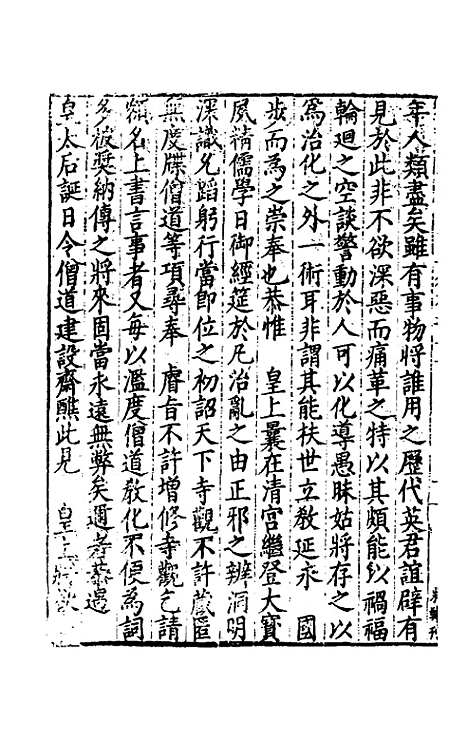 年人類盡矣雖有事物將誰用之歷代英君誼辟有
見於此非不欲深惡而痛革之特以其頗能以禍福
輪廻之空談警動於人可以化導愚昧姑將存之以
為治化之外一術耳非謂其能扶世立教延永　國
步而為之崇奉也恭惟　皇上曩在清宮繼登大寶
夙精儒學日御經筵於凡治亂之由正邪之辨洞明
深識允蹈躬行當即位之初詔天下寺觀不許藏匿
無度牒僧道等項尋奉　睿旨不許增修寺觀乞請
額名上書言事者又每以濫度僧道敎化不便為詞
多被奬納傳之將來固當永遠無弊矣邇者恭遇
皇太后誕日令僧道建設齋醮此見　皇上將